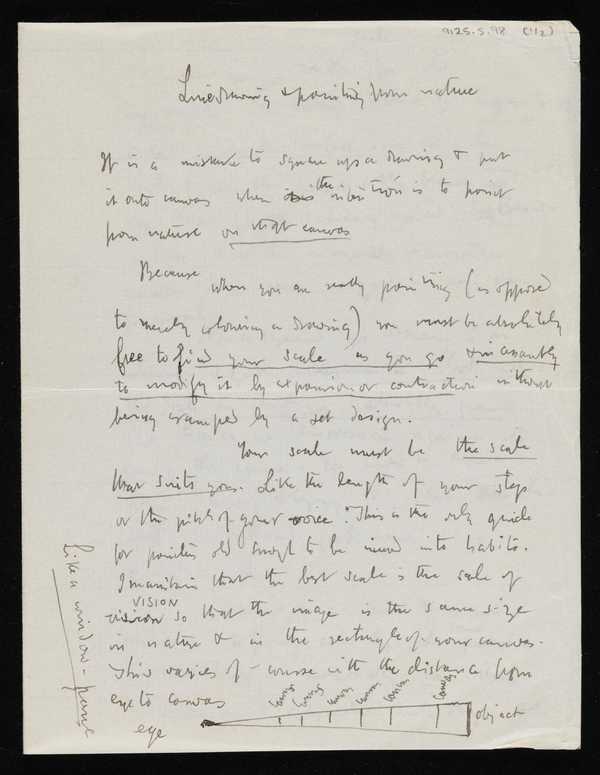 9125.5.98 (1/2)
Line drawing & painting from nature
It is a mistake to square up a drawing & put
it onto canvas when the intention is to paint
from nature on that canvas
Because when you are really painting (as opposed
to merely colouring a drawing) you must be absolutely
free to find your scale as you go & instantly
to modify it by expansion or contraction without
being cramped by a set design.
Your scale must be the scale
that suits you. Like the length of your step
or the pitch of your voice. This is the only guide
for painters old enough to be inured into habits.
I maintain that the best scale is the scale of
vision VISION so that the image is the same size
in nature & in the rectangle of your canvas.
This varies of course with the distance from
eye to canvas
canvas canvas canvas canvas canvas canvas
eye
object
like a window-pane